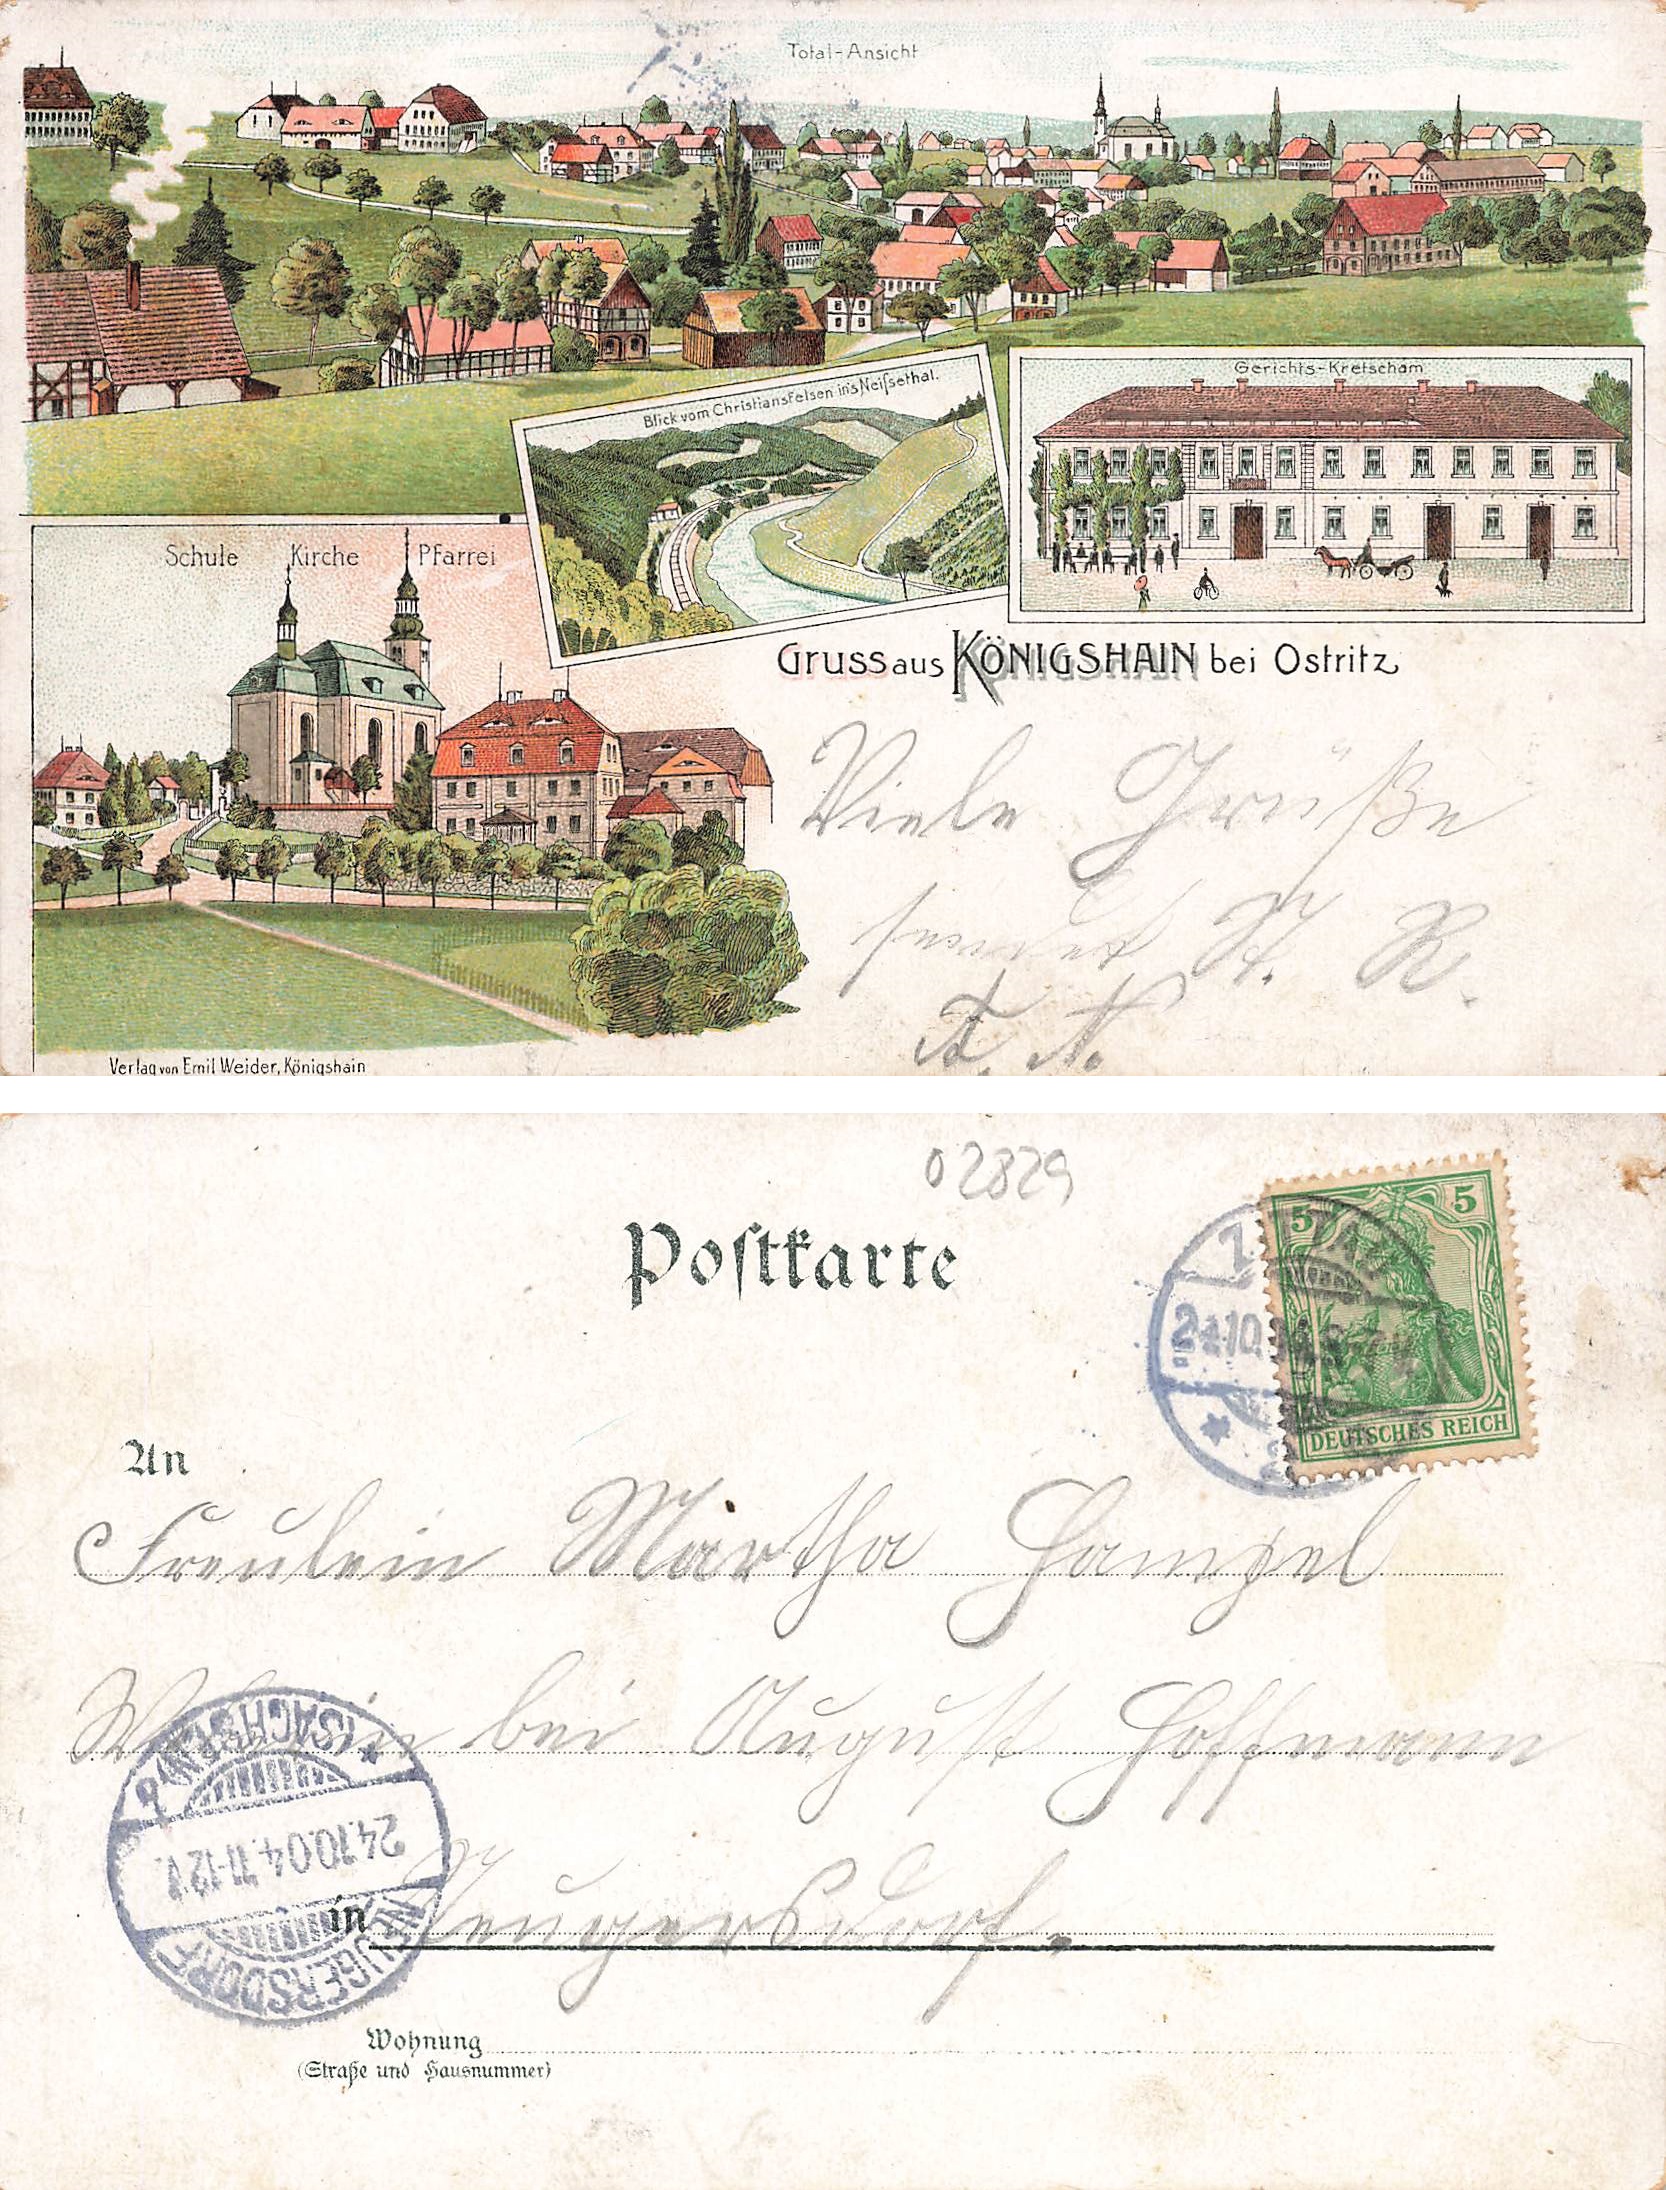 Total-Ansicht
Blick vom Christiansfelsen in's Neißethal.
Gerichts-Kretscham
Schule Kirche Pfarrei
Gruss aus KÖNIGSHAIN bei Ostritz
Viele Grüße
sendet A. R.
A. A.
Verlag von Emil Weider, Königshain
02829
Postkarte
ZITTAU
24.10.04.
5 5
DEUTSCHES REICH
An
Freulein Martha Hampel
bei August Hoffmann
in Neugersdorf.
(SACHSEN)
24.10.04. 11-12 V.
NEUGERSDORF
Wohnung
(Straße und Hausnummer)